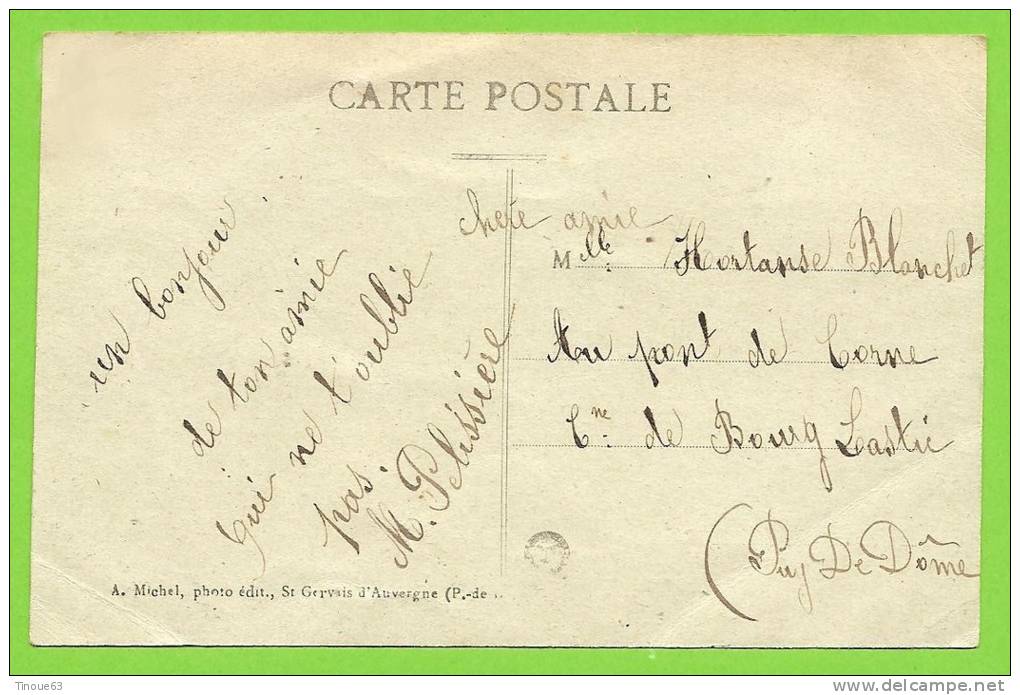 CARTE POSTALE
chere amie
un bonjour
de ton amie
qui ne t'oublie
pas.
M. Pelissière
Mlle Hortanse Blanchet
Au pont de Corne
Cne de Bourg Lastic
(Puy De Dôme
A. Michel, photo édit., St Gervais d'Auvergne (P.-de
Tinoue63
www.delcampe.net